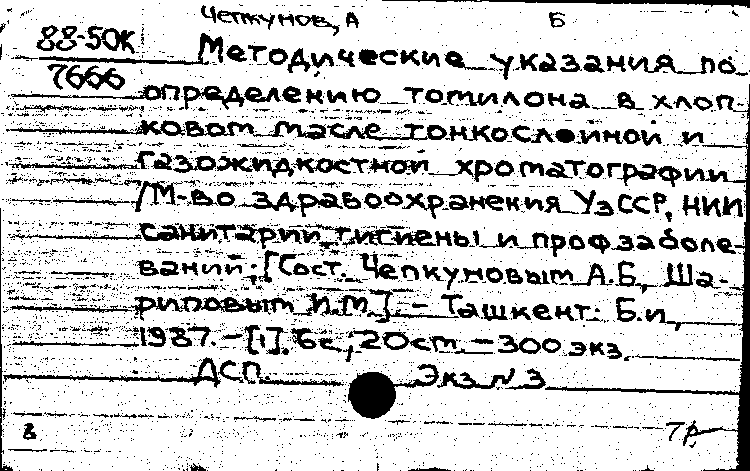 Чепкунов, А Б
88-50К Методические указания по
7666 определению томилона в хлоп-
ковом масле тонкослойной и
газожидкостной хроматографии
/М-во здравоохранения УзССР, НИИ
санитарии, гигиены и профзаболе-
ваний; [Сост. Чепкуновым А.Б., Ша-
риповым И.М.]. – Ташкент: Б.и,
1987. – [1]. 6с.; 20 ст. – 300 экз.
ДСП Экз N 3